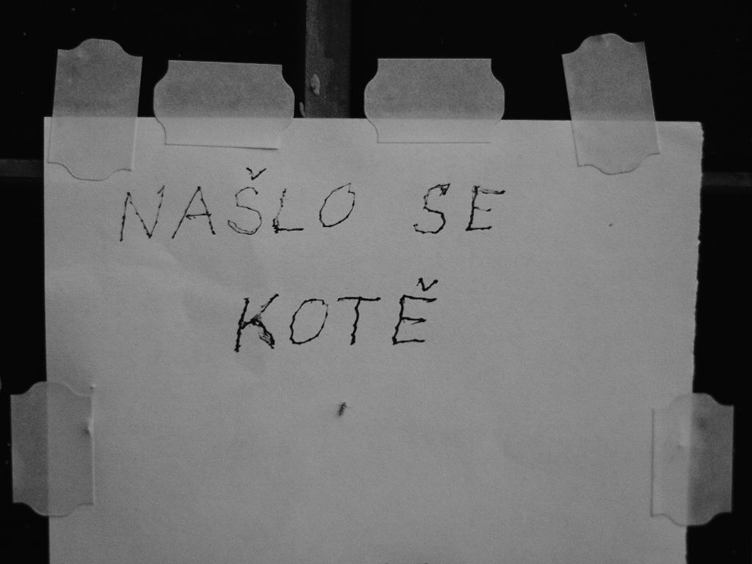 NAŠLO SE
KOTĚ